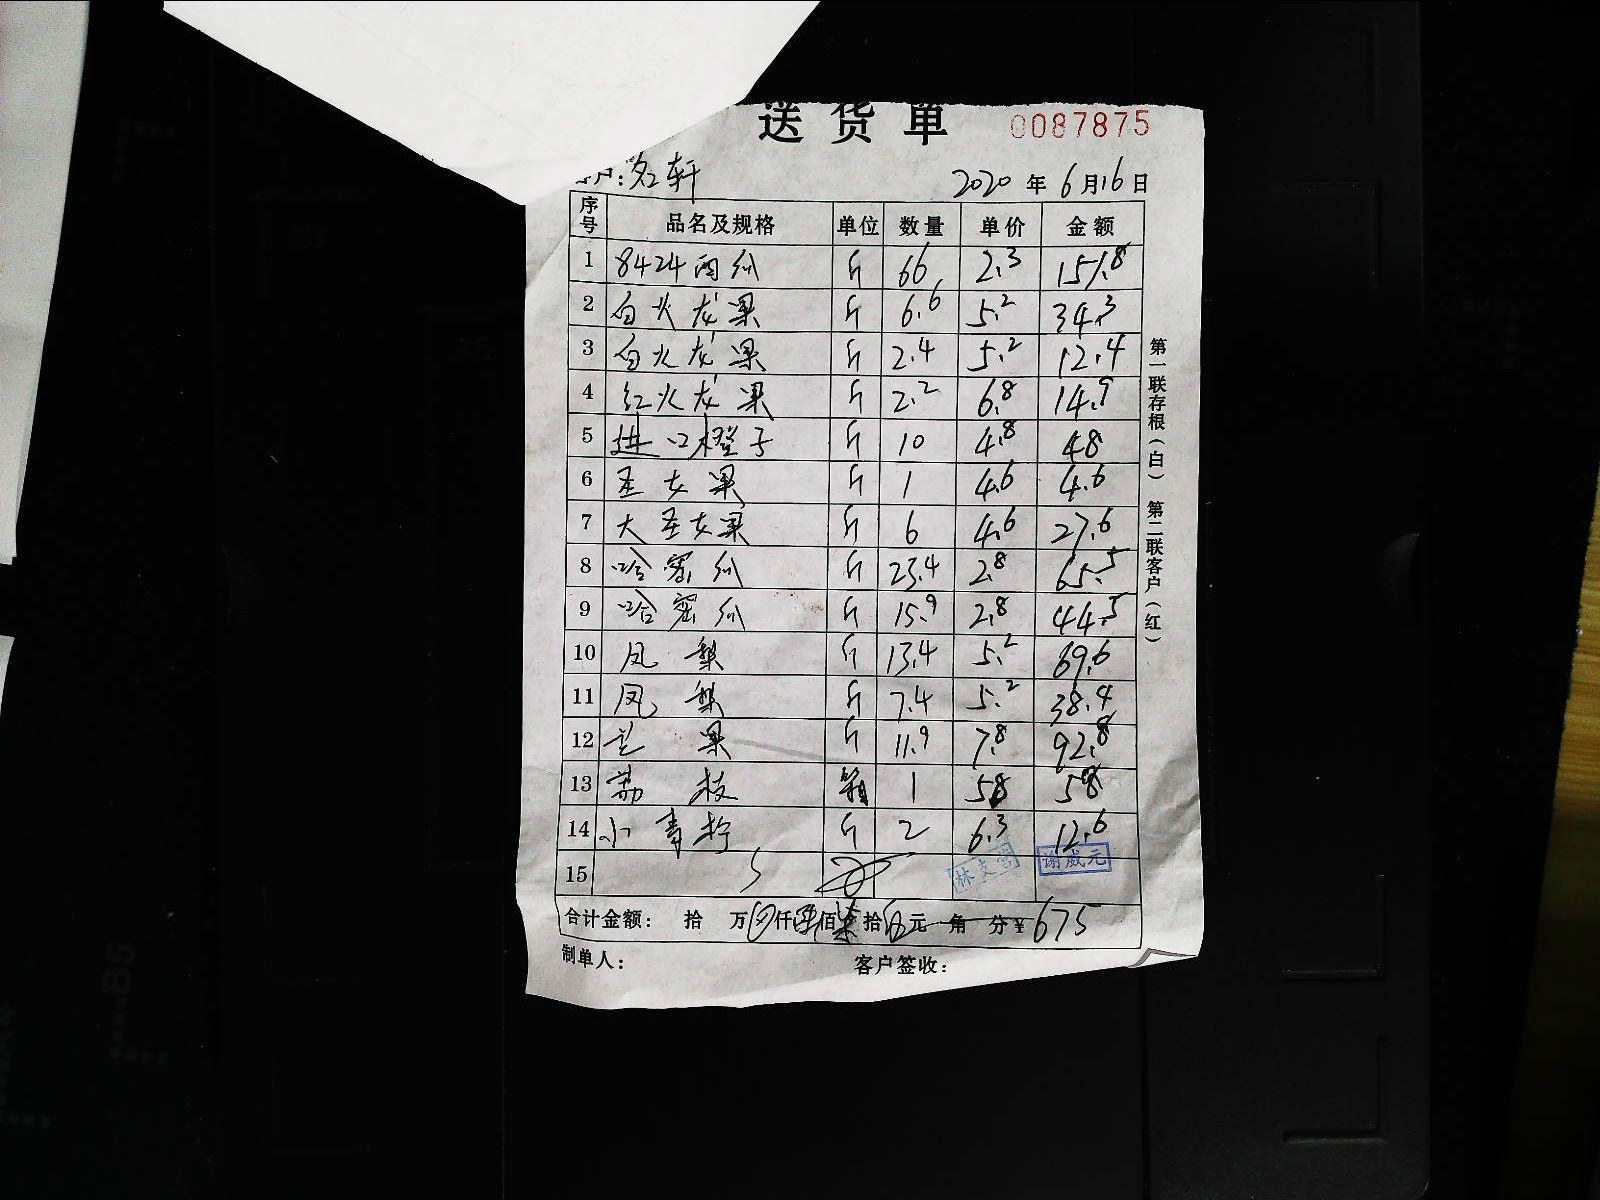 送货单 0087875
户：名轩 2020年6月16日
序号 品名及规格 单位 数量 单价 金额
1 8424西瓜 斤 66 2.3 151.8
2 白火龙果 斤 6.6 5.2 34.3
3 白火龙果 斤 2.4 5.2 12.4
4 红火龙果 斤 2.2 6.8 14.9
5 进口橙子 斤 10 4.8 48
6 圣女果 斤 1 4.6 4.6
7 大圣女果 斤 6 4.6 27.6
8 哈密瓜 斤 23.4 2.8 65.5
9 哈密瓜 斤 15.9 2.8 44.5
10 凤梨 斤 13.4 5.2 69.6
11 凤梨 斤 7.4 5.2 38.4
12 芒果 斤 11.9 7.8 92.8
13 荔枝 箱 1 58 58
14 小青柠 斤 2 6.3 12.6
15 谢威元
合计金额： 拾 万 仟 佰 柒拾伍元 角 分￥675
制单人： 客户签收：
第一联存根（白） 第二联客户（红）